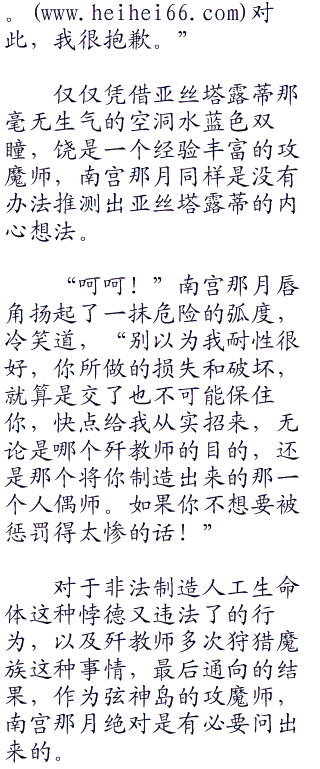 。(www.heihei66.com)对
此，我很抱歉。”
仅仅凭借亚丝塔露蒂那
毫无生气的空洞水蓝色双
瞳，饶是一个经验丰富的攻
魔师，南宫那月同样是没有
办法推测出亚丝塔露蒂的内
心想法。
“呵呵！”南宫那月唇
角扬起了一抹危险的弧度，
冷笑道，“别以为我耐性很
好，你所做的损失和破坏，
就算是交了也不可能保住
你，快点给我从实招来，无
论是哪个歼教师的目的，还
是那个将你制造出来的那一
个人偶师。如果你不想要被
惩罚得太惨的话！”
对于非法制造人工生命
体这种悖德又违法了的行
为，以及歼教师多次狩猎魔
族这种事情，最后通向的结
果，作为弦神岛的攻魔师，
南宫那月绝对是有必要问出
来的。